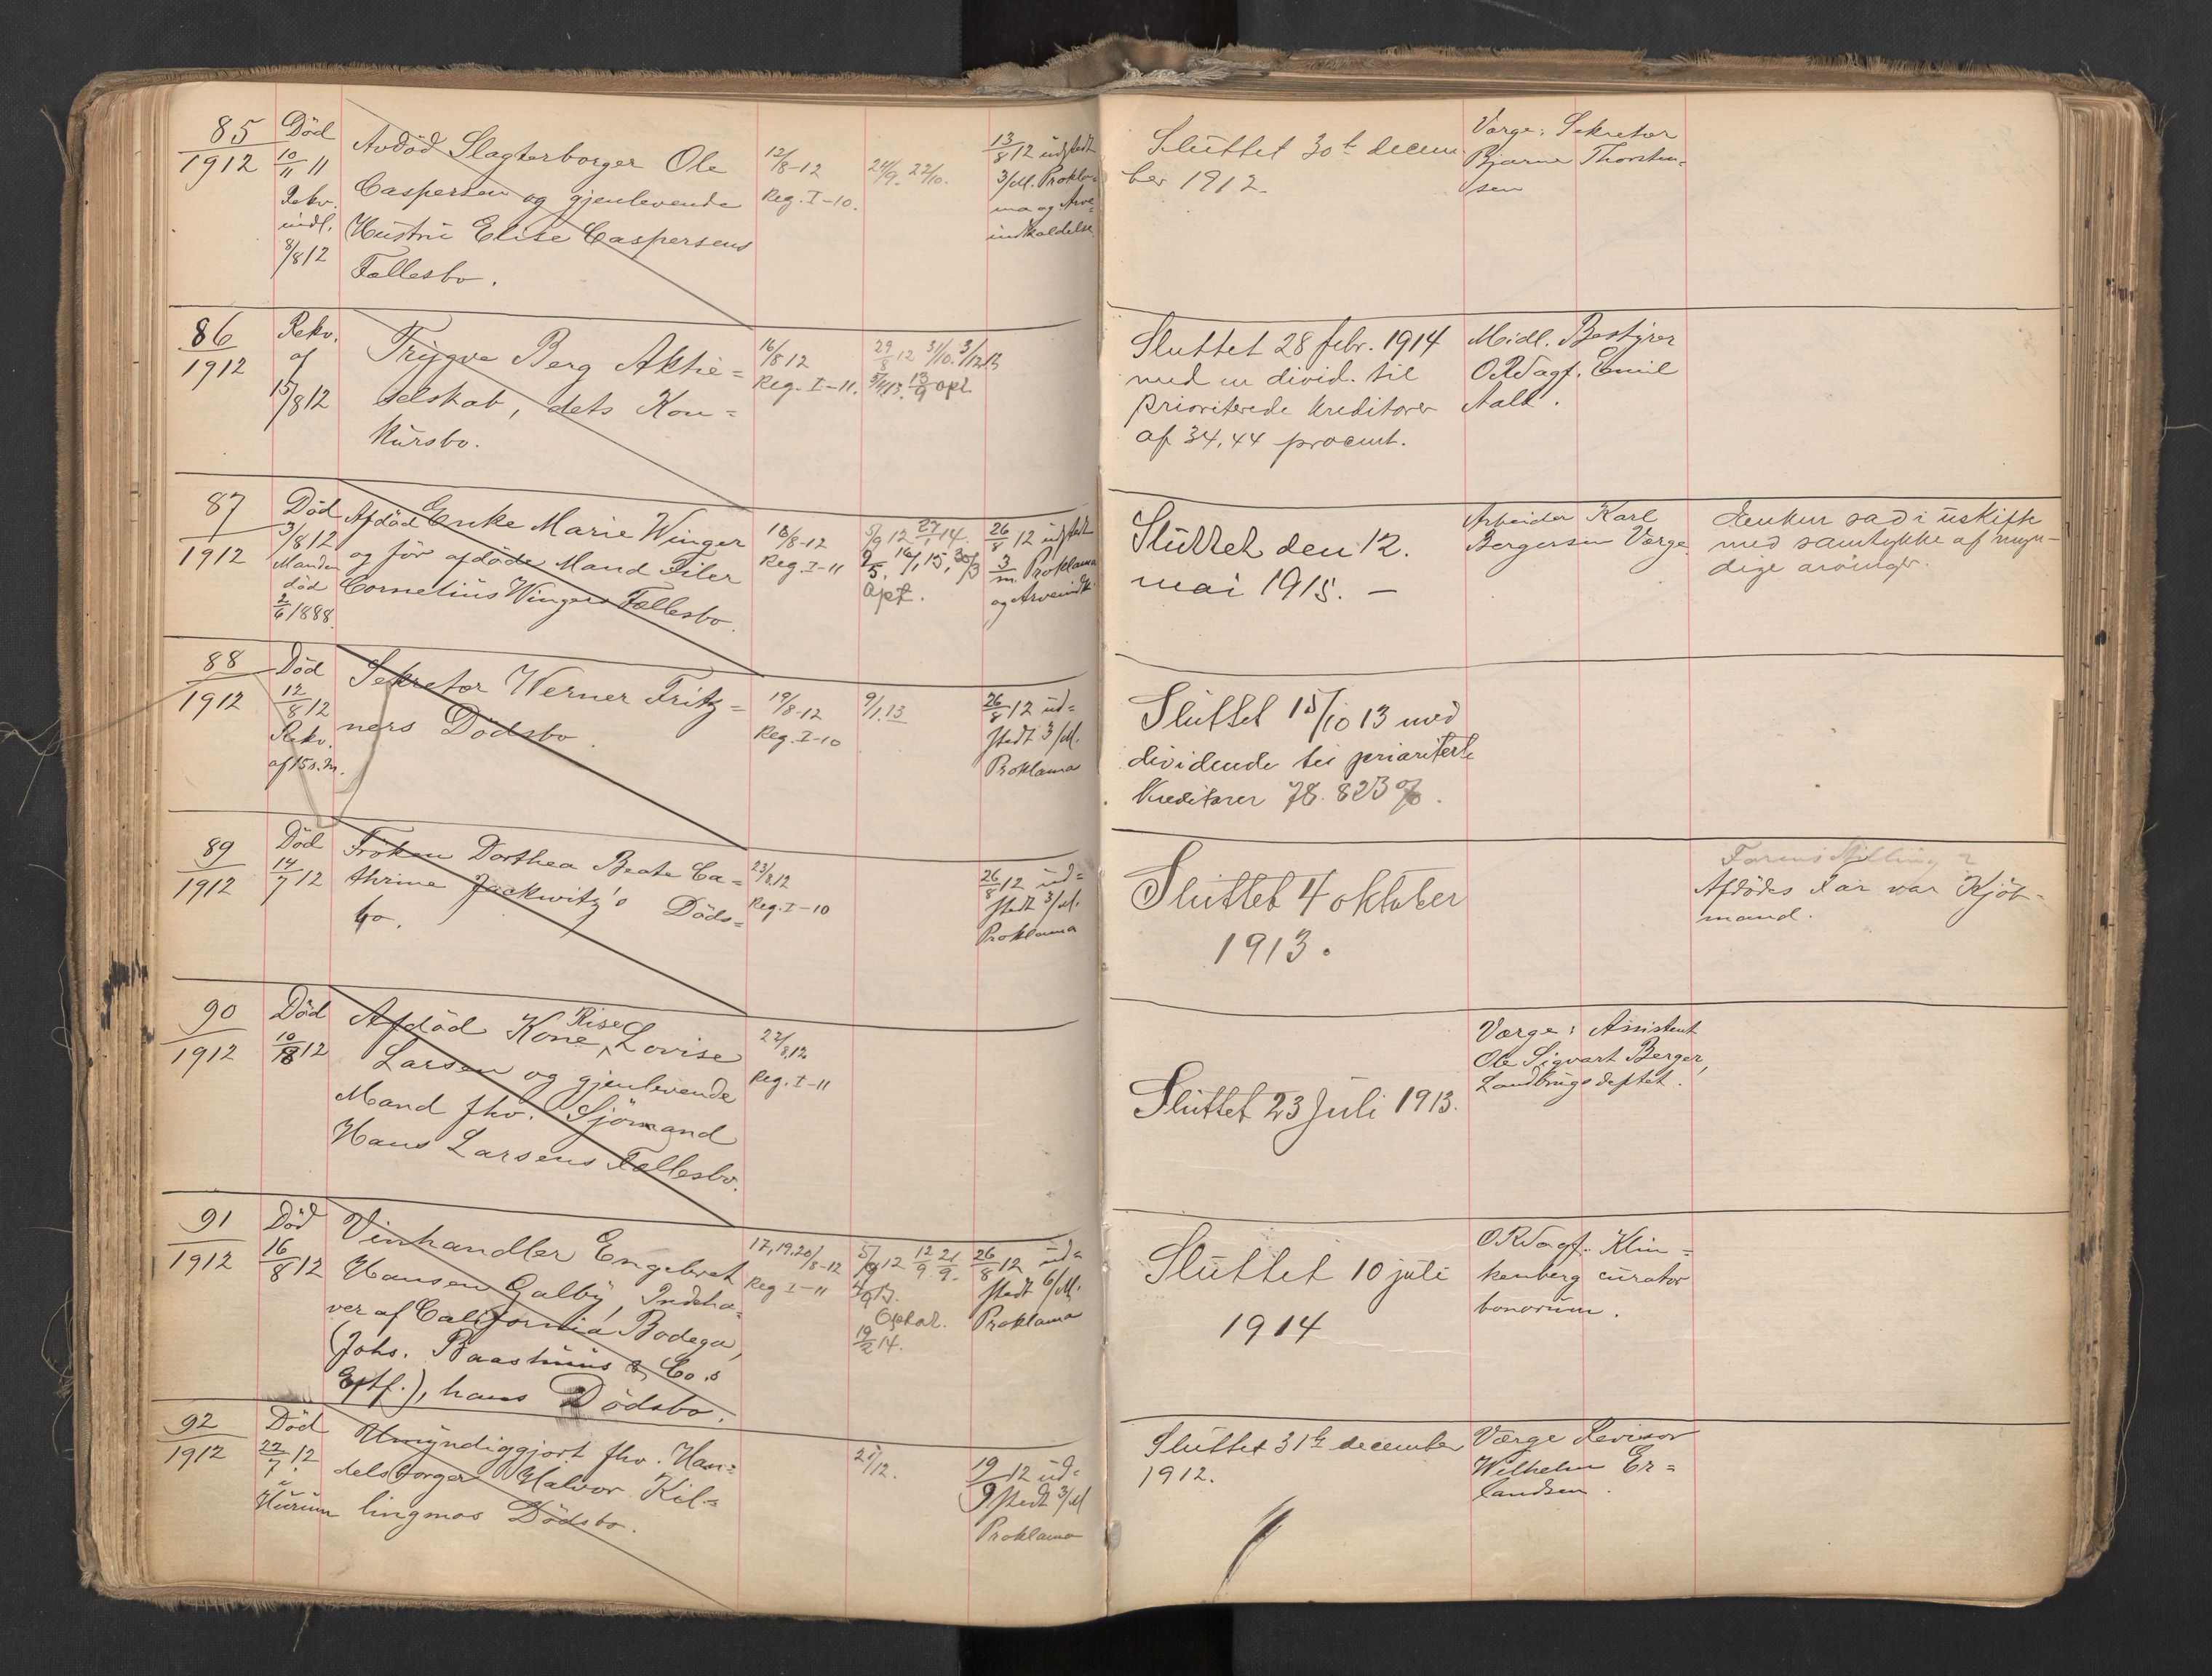 85
1912
Död
10/11 11
Rekv.
indl.
8/8 12
Avdöd Slagterborger Ole
Caspersen og gjenlevende
Hustru Elise Caspersens
Fællesbo.
12/8-12
Reg. I-10.
24/9. 22/10.
13/8 12 udstedt
3/M. Prokla-
ma og Arve-
indkaldelse.
Sluttet 30te decem-
ber 1912.
Værge: Sekretær
Bjarne Thorsten-
sen
86
1912
Rekv.
af
15/8 12
Trygve Berg Aktie=
selskab, dets Kon=
kursbo.
16/8 12
Reg. I-11.
29/8 12 31/10. 3/12 12
opt.
Sluttet 28 febr. 1914
med en divid. til
prioriterede kreditorer
af 34,44 procent.
Midl. Bestyrer
ORSagf. Emil
Aall.
87
1912
Död
3/8 12
Manden
död
2/6 1888.
Afdöd Enke Marie Winger
og för afdöde Mand Filer
Cornelius Wingers Fællesbo.
16/8-12
Reg. I-11
5/9 12 27/1 14.
2/5. 16/1 15, 30/3
Opt.
26/8 12 udstedt
3/m. Proklama
og Arveindk.
Sluttet den 12.
mai 1915. —
Arbeider Karl
Bergersen Værge.
Enken sad i uskifte
med samtykke af myn-
dige arvinger.
88
1912
Död
12/8 12
Rekv.
af 15 s.m.
Sekretær Werner Fritz=
ners Dödsbo.
19/8-12
Reg. I-10
9/1.13
26/8 12 ud=
stedt 3/M.
Proklama
Sluttet 15/10 13 med
dividende til prioriterte
kreditorer 78.823%.
89
1912
Död
14/7 12
Fröken Dorthea Beate Ca=
thrine Jackwitz's Döds=
bo.
23/8.12
Reg. I-10
26/8 12 ud=
stedt 3/M.
Proklama
Sluttet 4 oktober
1913.
Farens Stilling?
Afdödes Far var Kjöb-
mand.
90
1912
Död
10/8 12
Afdöd Kone Rise Lovise
Larsen og gjenlevende
Mand fhv. Sjömand
Hans Larsens Fællesbo.
22/8.12
Reg. I-11
Sluttet 23 juli 1913.
Værge: Assistent
Ole Sigvart Berger,
Landbrugsdeptet.
91
1912
Död
16/8 12
Vinhandler Engebret
Hansen Galby, Indeha=
ver af California Bodega,
(Johs. Baastuuus & Co.s
Eftf.), hans Dödsbo.
17,19,20/8-12
Reg I-11
5/9 12 12/9 21/9.
Opkal.
19/2 14.
26/8 12 ud=
stedt 6/M.
Proklama
Sluttet 10 juli
1914
ORSagf. Klin=
kenberg curator
bonorum.
92
1912
Död
22/7 12
i
Hurum
Umyndiggjort fhv. Han=
delsborger Halvor Kil=
lingmos Dödsbo.
21/12.
19/9 12 ud=
stedt 3/M
Proklama
Sluttet 31te december
1912.
Værge Revisor
Wilhelm Er=
landsen.